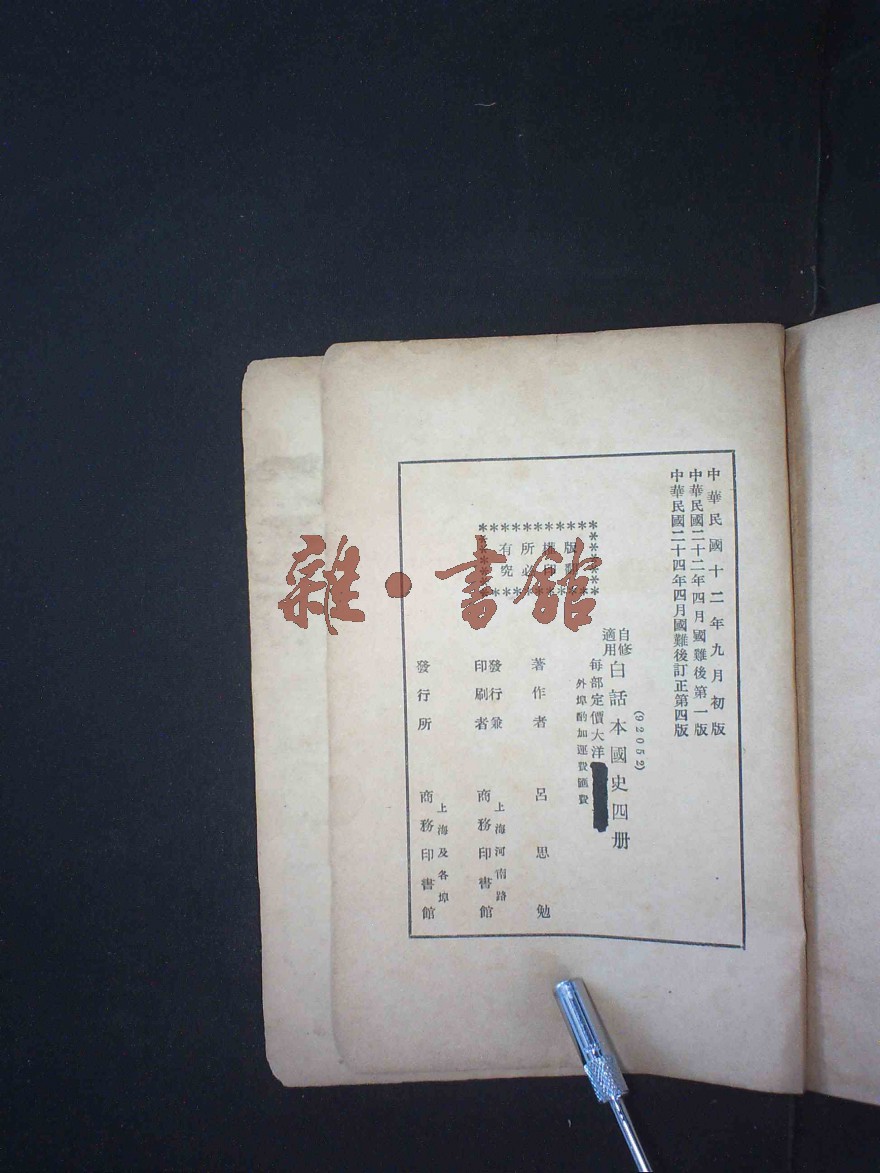 中華民國十二年九月初版
中華民國二十二年四月國難後第一版
中華民國二十四年四月國難後訂正第四版
(92052)
自修適用 白話本國史四册
每部定價大洋
外埠酌加運費匯費
版權所有
翻印必究
著作者 呂思勉
發行兼印刷者 上海河南路 商務印書館
發行所 上海及各埠 商務印書館
雜·書館